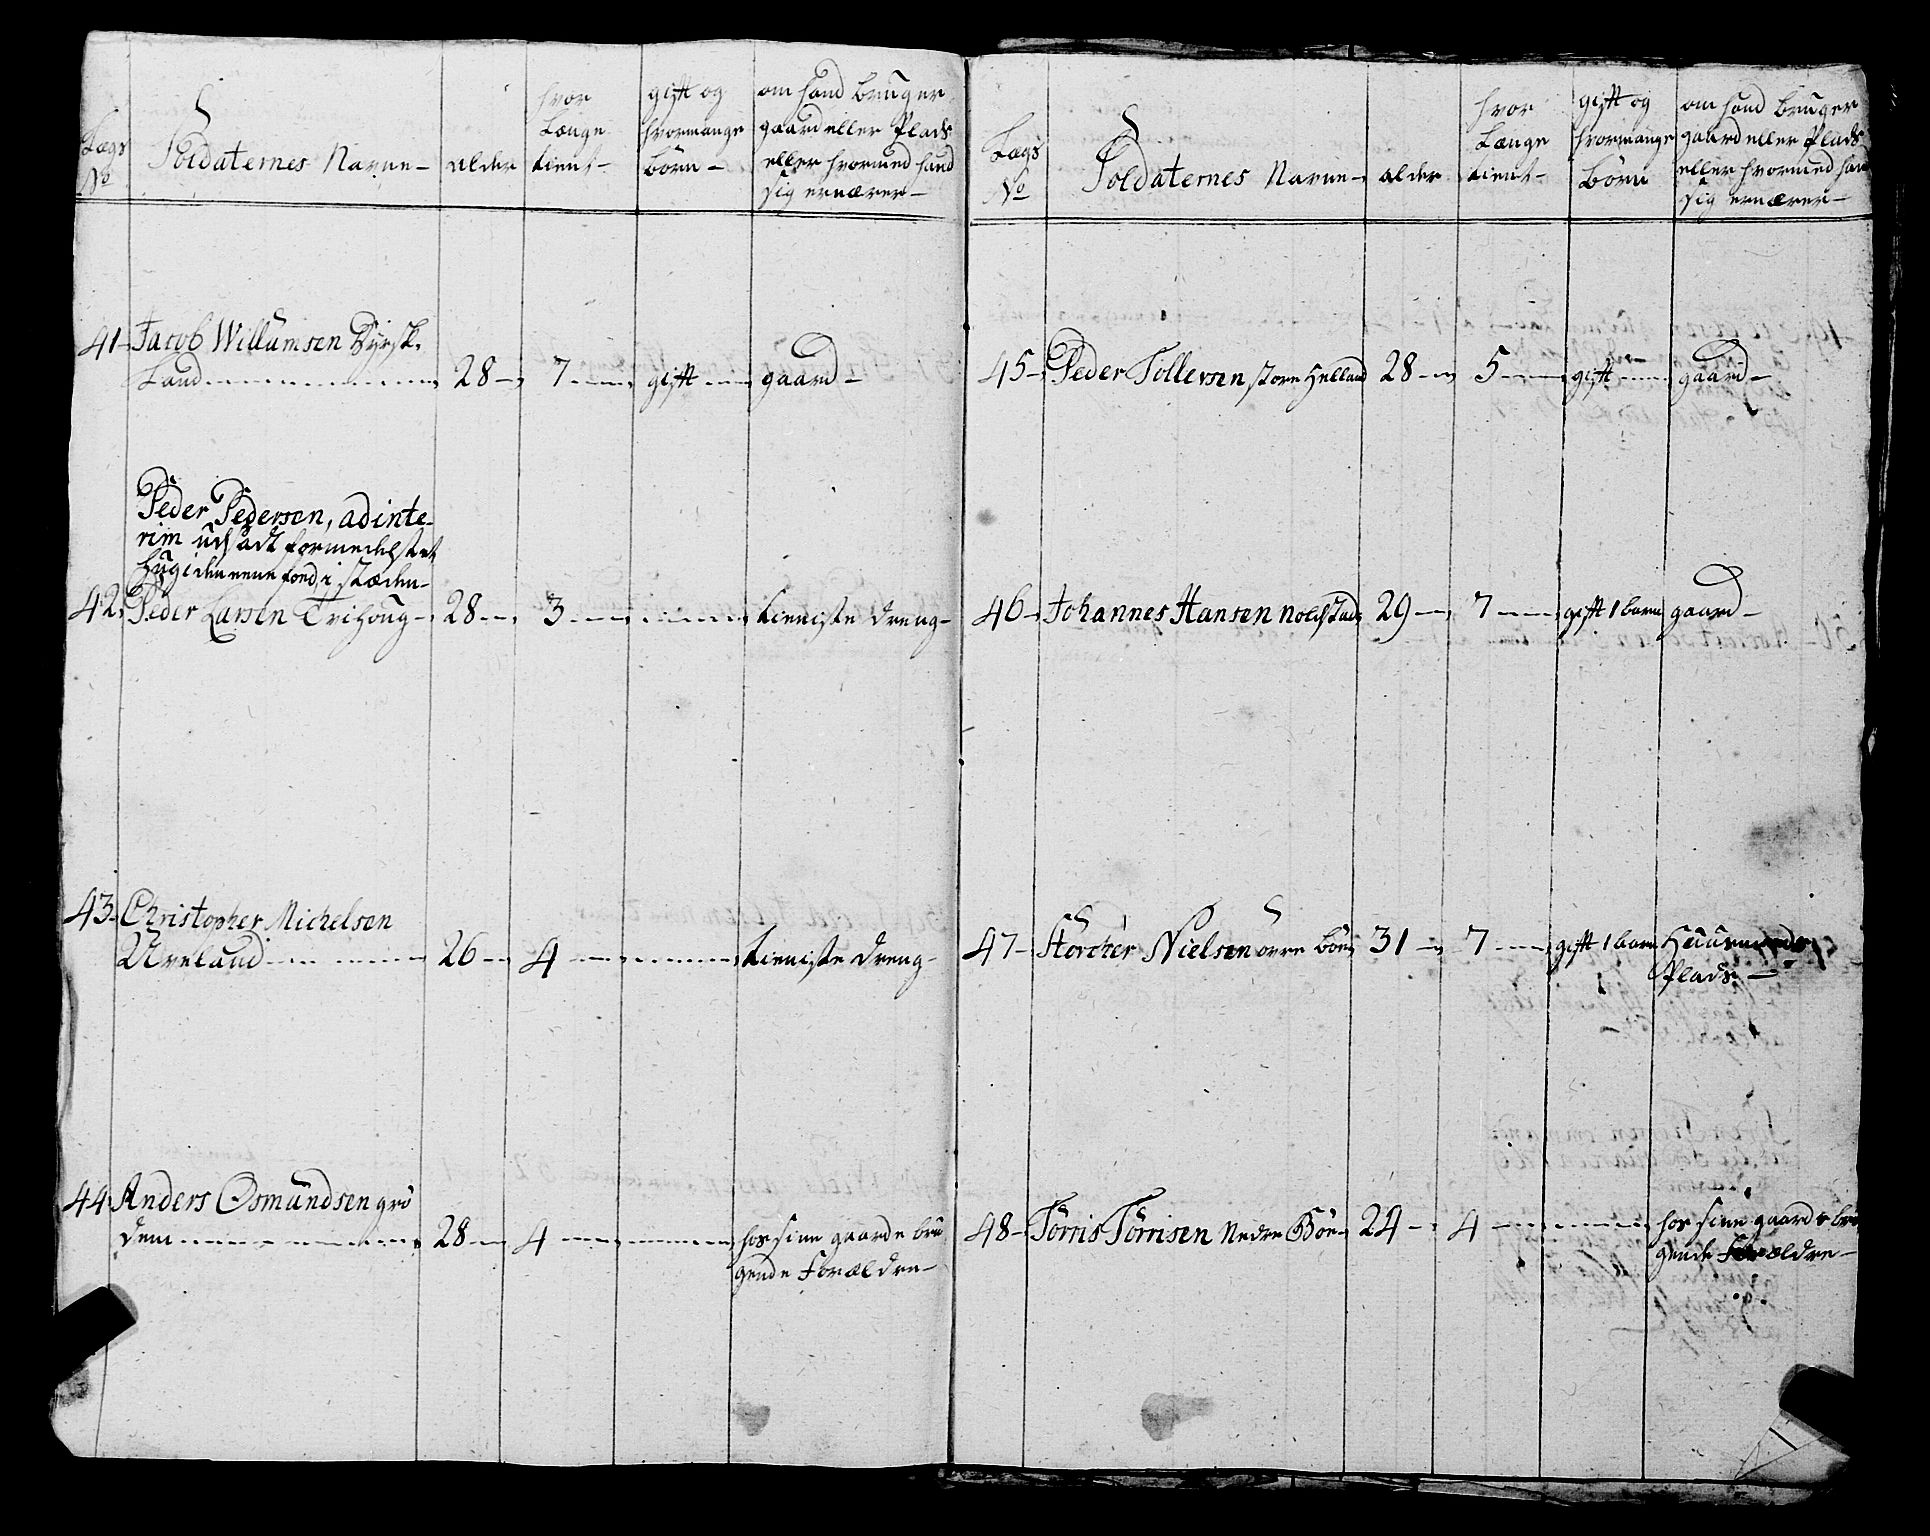 Lægs
No
Soldaternes Navne -
alder
hvor
Længe
tient -
gift og
hvormange
börn -
om hand bruger
gaard eller Plads
eller hvormed hand
sig ernærer -
41 - Jacob Willumsen Dyrsk.
Land 28 - 7 - gift - gaard -
Peder Pedersen, ad inte-
rim udsadt formedelst et
hug i den ene fod, i stæden
42. Peder Larsen Trihoug - 28 - 3 - tieniste dreng -
43 - Christopher Michelsen
Ureland 26 - 4 - tieniste dreng -
44 Anders Osmundsen grö
dem 28 - 4 - hos sine gaarde bru
gende Forældre -
Lægs
No
Soldaternes Navne -
alder
hvor
Længe
tient -
gift og
hvormange
Börn
om hand bruger
gaard eller Plads
eller hvormed han
sig ernærer -
45 - Peder Tollevsen store Helland 28 - 5 - gift - gaard -
46 - Johannes Hansen Noldstad 29 - 7 - gift 1 barn gaard -
47 - Störcher Nielsen övre Böe 31 - 7 - gift 1 barn
Plads -
48 - Törris Törrisen Nedre Böe - 24 - 4 - hos sine gaarde bru
gende Forældre -